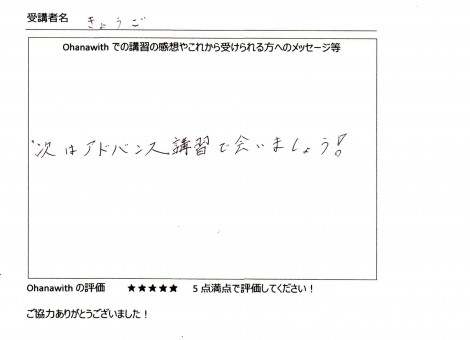 受講者名 きょうご
Ohanawith での講習の感想やこれから受けられる方へのメッセージ等
次はアドバンス講習で会いましょう!
Ohanawith の評価 ★★★★★ 5点満点で評価してください！
ご協力ありがとうございました！